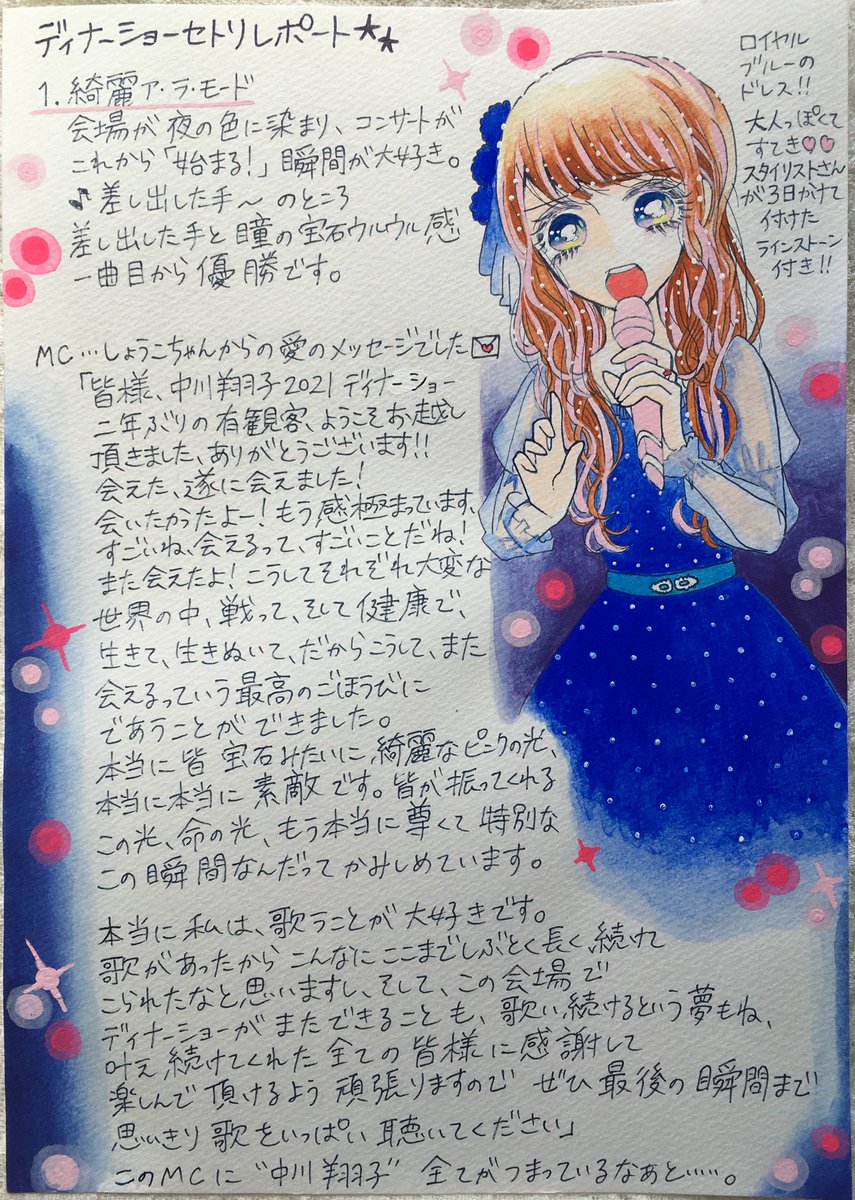 ディナーショーセトリレポート★★
1. 綺麗ア・ラ・モード
会場が夜の色に染まり、コンサートが
これから「始まる!」瞬間が大好き。
♪差し出した手〜 のところ
差し出した手と瞳の宝石ウルウル感
一曲目から優勝です。
ロイヤル
ブルーの
ドレス!!
大人っぽくて
すてき♡♡
スタイリストさん
が3日かけて
付けた
ラインストーン
付き!!
MC…しょうこちゃんからの愛のメッセージでした
「皆様、中川翔子2021ディナーショー
二年ぶりの有観客、ようこそお越し
頂きました、ありがとうございます!!
会えた、遂に会えました!
会いたかったよー!もう感極まっています、
すごいね、会えるって、すごいことだね!
また会えたよ!こうしてそれぞれ大変な
世界の中、戦って、そして健康で、
生きて、生きぬいて、だからこうして、また
会えるっていう最高のごほうびに
であうことができました。
本当に皆宝石みたいに、綺麗なピンクの光、
本当に本当に素敵です。皆が振ってくれる
この光、命の光、もう本当に尊くて特別な
この瞬間なんだってかみしめています。
本当に私は、歌うことが大好きです。
歌があったからこんなにここまでしぶとく長く続けて
こられたなと思いますし、そして、この会場で
ディナーショーがまたできることも、歌い続けるという夢もね、
叶え続けてくれた全ての皆様に感謝して
楽しんで頂けるよう頑張りますので ぜひ最後の瞬間まで
思いきり歌をいっぱい聴いてください」
このMCに"中川翔子"全てがつまっているなぁと……。